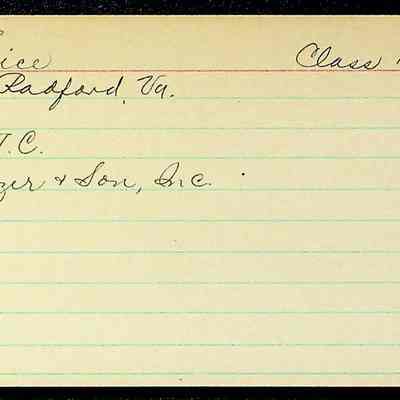 ice Class
Radford, Va.
T.C.
ger & Son, Inc.